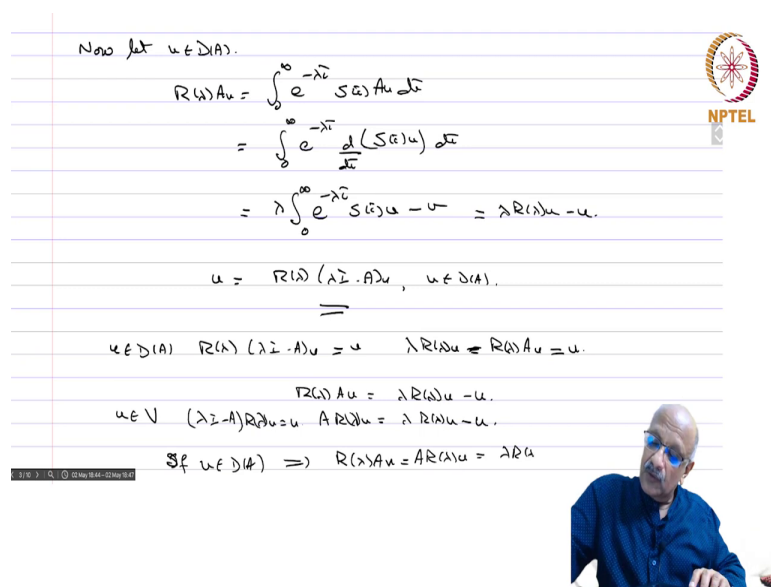 Now let u ∈ D(A).
R(λ)Au = ∫₀^∞ e^{-λτ} S(τ)Au dτ
= ∫₀^∞ e^{-λτ} d/dτ (S(τ)u) dτ
= λ∫₀^∞ e^{-λτ} S(τ)u - u = λR(λ)u - u.
u = R(λ)(λI-A)u, u ∈ D(A).
u ∈ D(A) R(λ)(λI-A)u = u λR(λ)u - R(λ)Au = u.
R(λ)Au = λR(λ)u - u.
u ∈ V (λI-A)R(λ)u = u AR(λ)u = λR(λ)u - u.
If u ∈ D(A) ⇒ R(λ)Au = AR(λ)u = λR(
NPTEL
3 / 10 02 May 18:44 - 02 May 18:47